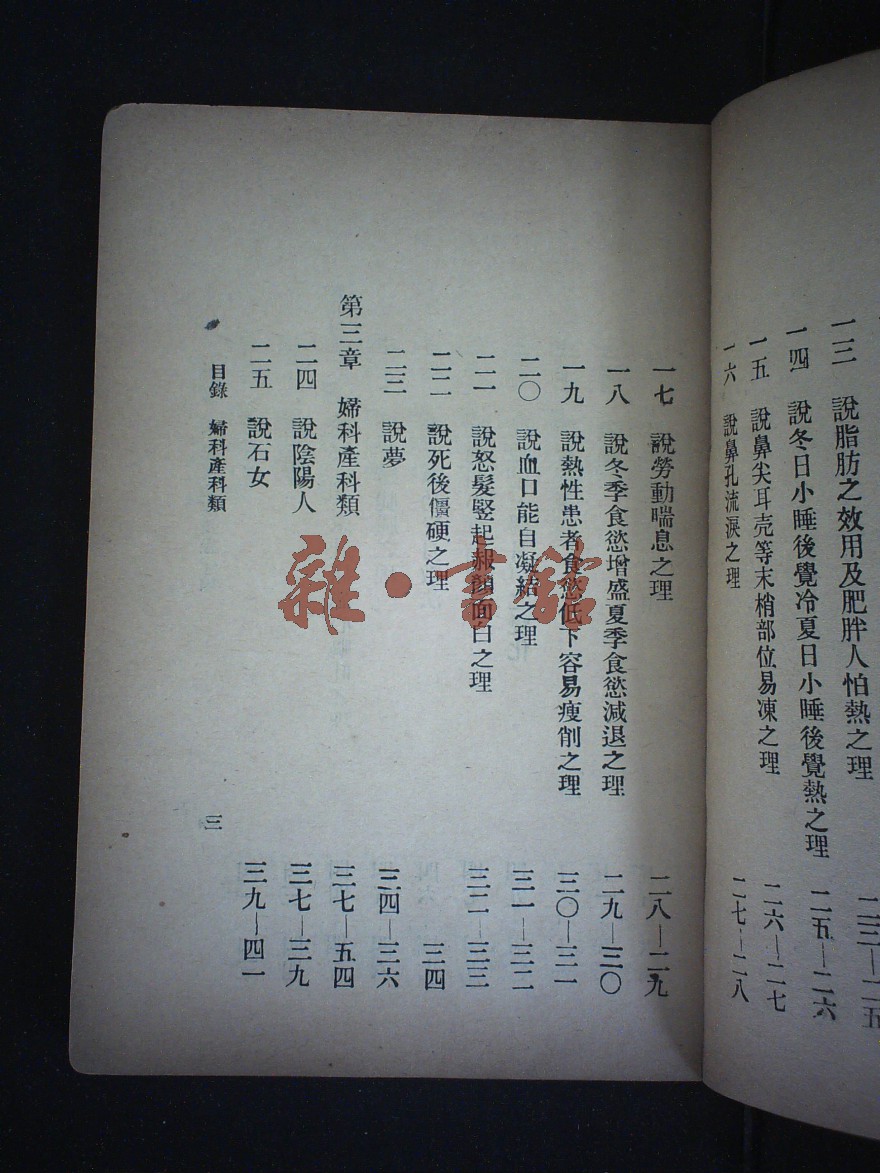 一三　說脂肪之效用及肥胖人怕熱之理　二三—二五
一四　說冬日小睡後覺冷夏日小睡後覺熱之理　二五—二六
一五　說鼻尖耳壳等末梢部位易凍之理　二六—二七
一六　說鼻孔流淚之理　二七—二八
一七　說勞動喘息之理　二八—二九
一八　說冬季食慾增盛夏季食慾減退之理　二九—三〇
一九　說熱性患者食慾低下容易瘦削之理　三〇—三一
二〇　說血口能自凝結之理　三一—三二
二一　說怒髮豎起赧顏面白之理　三二—三三
二二　說死後僵硬之理　三四
二三　說夢　三四—三六
第三章　婦科產科類　三七—五四
二四　說陰陽人　三七—三九
二五　說石女　三九—四一
目錄　婦科產科類　三
雜·書館